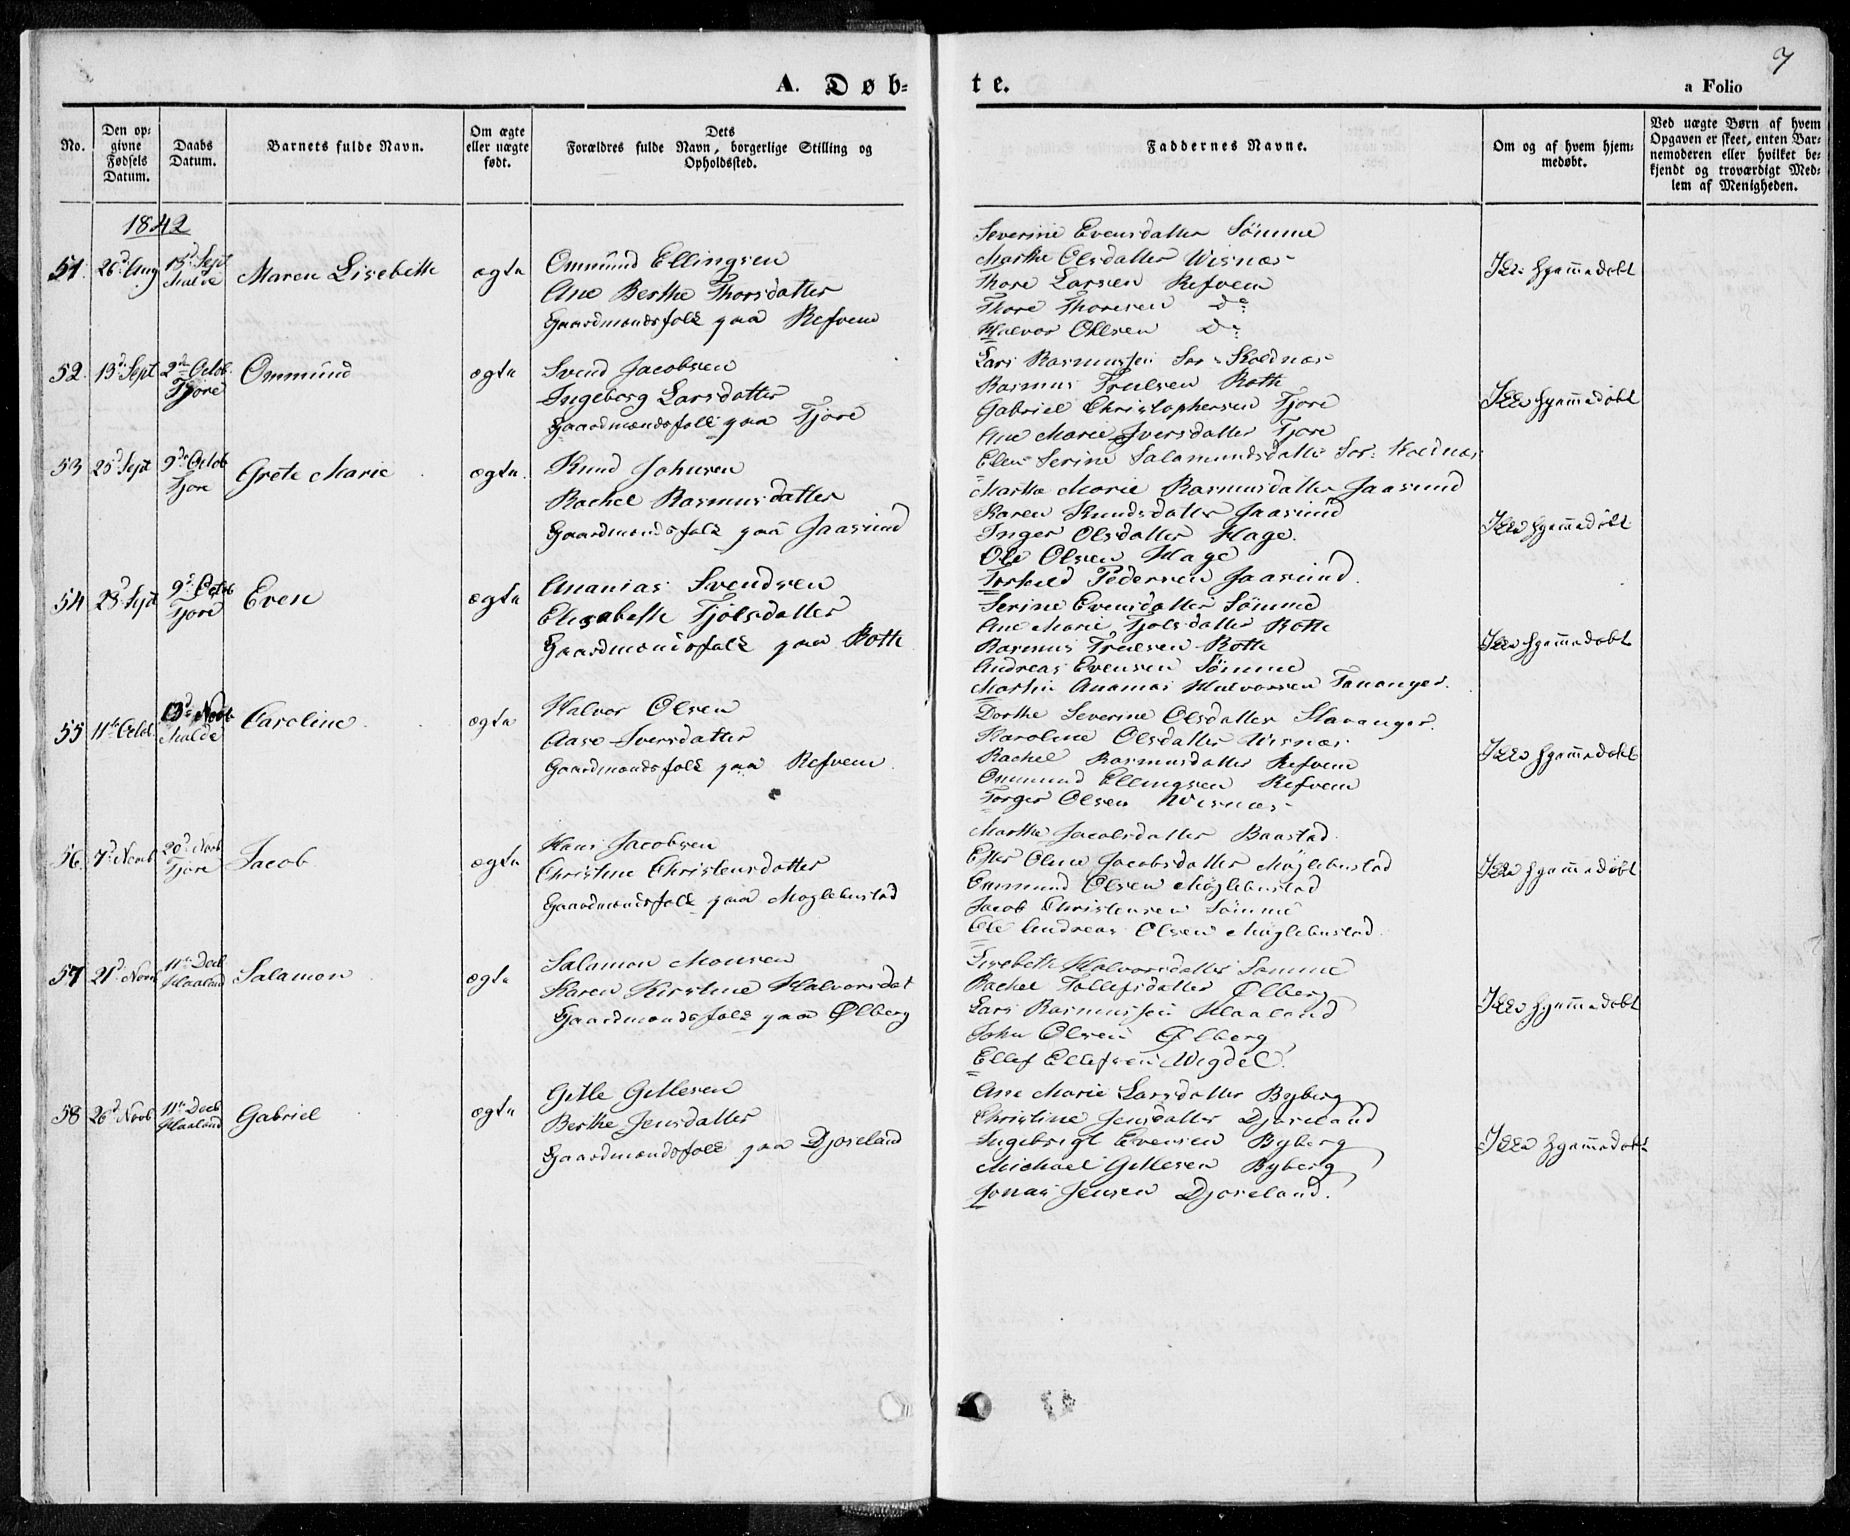 7
A. Døb-
te.
a Folio
No.
Den op-
givne
Fødsels
Datum.
Daabs
Datum.
Barnets fulde Navn.
Om ægte
eller uægte
født.
Dets
Forældres fulde Navn, borgerlige Stilling og
Opholdssted.
Faddernes Navne.
Om og af hvem hjem-
medøbt.
Ved uægte Børn af hvem
Opgaven er skeet, enten Bar-
nemoderen eller hvilket be-
kjendt og troværdigt Med-
lem af Menigheden.
1842
51. 26d Aug 18d Sept
Malde
Maren Lisebeth
ægte
Ommund Ellingsen
Ane Berthe Thorsdatter
Gaardmandsfolk paa Refvem
Severine Evensdatter Sömme
Marthe Olsdatter Wisnæs
Thore Larsen Refvem
Thore Thoresen Do
Halvor Olsen Do
Ikke hjemmedøbt
52. 13d Sept 2den Octob
Tjore
Ommund
ægte
Svend Jacobsen
Ingeborg Larsdatter
Gaardmændsfolk paa Tjore
Lars Rasmussen Sør Koldnæs
Rasmus Truelsen Roth
Gabriel Christophersen Tjore
Ane Marie Iversdatter Tjore
Elen Serine Salamundsdatter Sør Koldnæs
Ikke hjemmedøbt
53 25d Sept 9de Octob
Tjore
Grete Marie
ægte
Knud Johnsen
Rachel Rasmusdatter
Gaardmandsfolk paa Jaasund
Marthe Marie Rasmusdatter Jaasund
Karen Knudsdatter Jaasund
Inger Olsdatter Hage
Ole Olsen Hage
Torkild Pedersen Jaasund
Ikke hjemmedøbt
54 28 Sept 9d Octob
Tjore
Even
ægte
Ananias Svendsen
Elisabeth Tjølsdatter
Gaardmændsfolk paa Roth
Serine Evensdatter Sömme
Ane Marie Tjølsdatter Roth
Rasmus Truelsen Roth
Andreas Evensen Sömme
Martin Ananias Halvorsen Tananger
Ikke hjemmedøbt
55 11te Octob 13d Novb
Malde
Caroline
ægte
Halvor Olsen
Aase Iversdatter
Gaardmandsfolk paa Refvem
Dorthe Severine Olsdatter Stavanger
Karoline Olsdatter Wisnæs
Rachel Rasmusdatter Refvem
Ommund Ellingsen Refvem
Torger Olsen Wisnæs
Ikke hjemmedøbt
56 7d Novb 20d Novb
Tjore
Jacob
ægte
Hans Jacobsen
Christine Christensdatter
Gaardmandsfolk paa Møglebustad
Marthe Jacobsdatter Baastad
Olene Jacobsdatter Møglebustad
Ommund Olsen Møglebustad
Jacob Christensen Sömme
Ole Andreas Olsen Møglebustad
Ikke hjemmedøbt
57 21d Novb 11te Decb
Haaland
Salamon
ægte
Salamon Monsen
Karen Kirstine Halvorsdat
Gaardmandsfolk paa Ølberg
Lisebeth Halvorsdatter Sömme
Rachel Tollefsdatter Ølberg
Lars Rasmussen Haaland
John Olsen Ølberg
Ellef Ellefsen Wigdel
Ikke hjemmedøbt
58 26d Novb 11te Decb
Haaland
Gabriel
ægte
Gitle Gitlesen
Berthe Jensdatter
Gaardmandsfolk paa Djoseland
Ane Marie Larsdatter Byberg
Christine Jensdatter Djoseland
Ingebrigt Evensen Byberg
Michael Gitlesen Byberg
Jonas Jensen Djoseland
Ikke hjemmedøbt